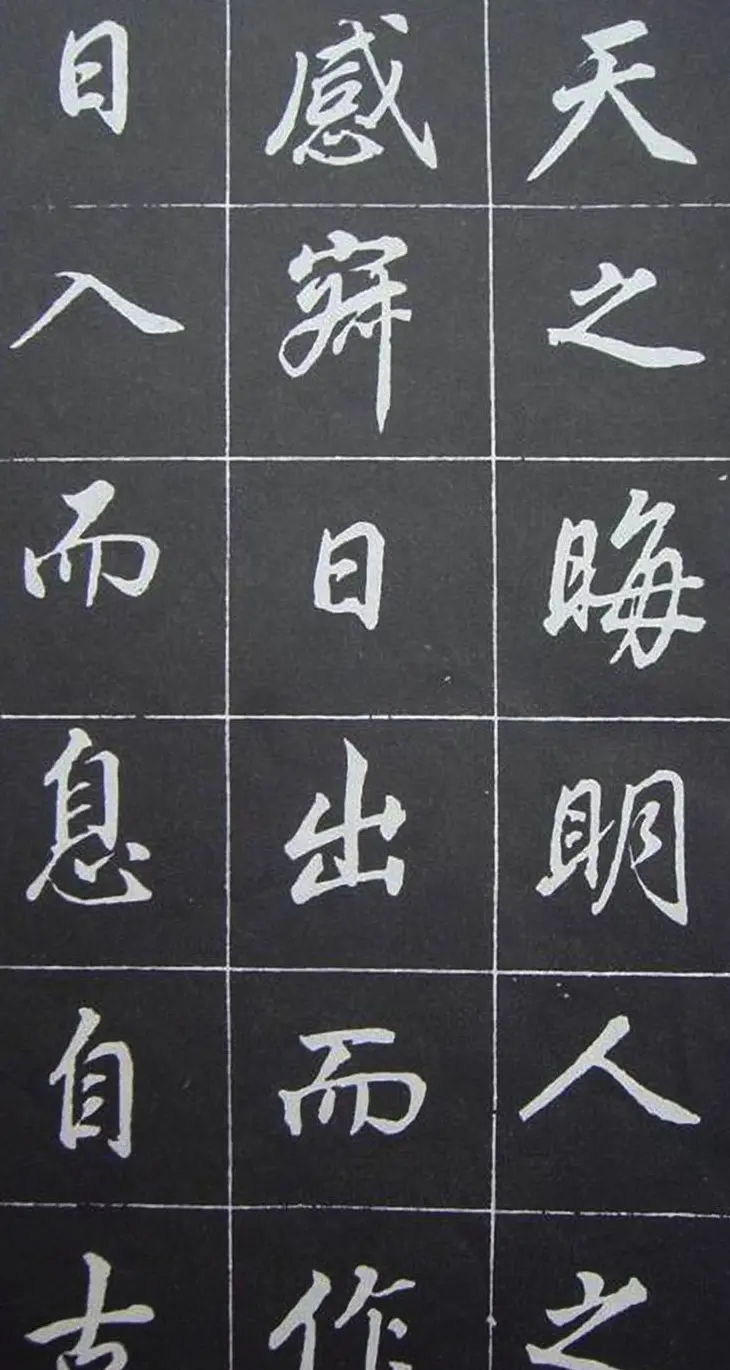 天之晦明人之
感日出而作
日入而息自古